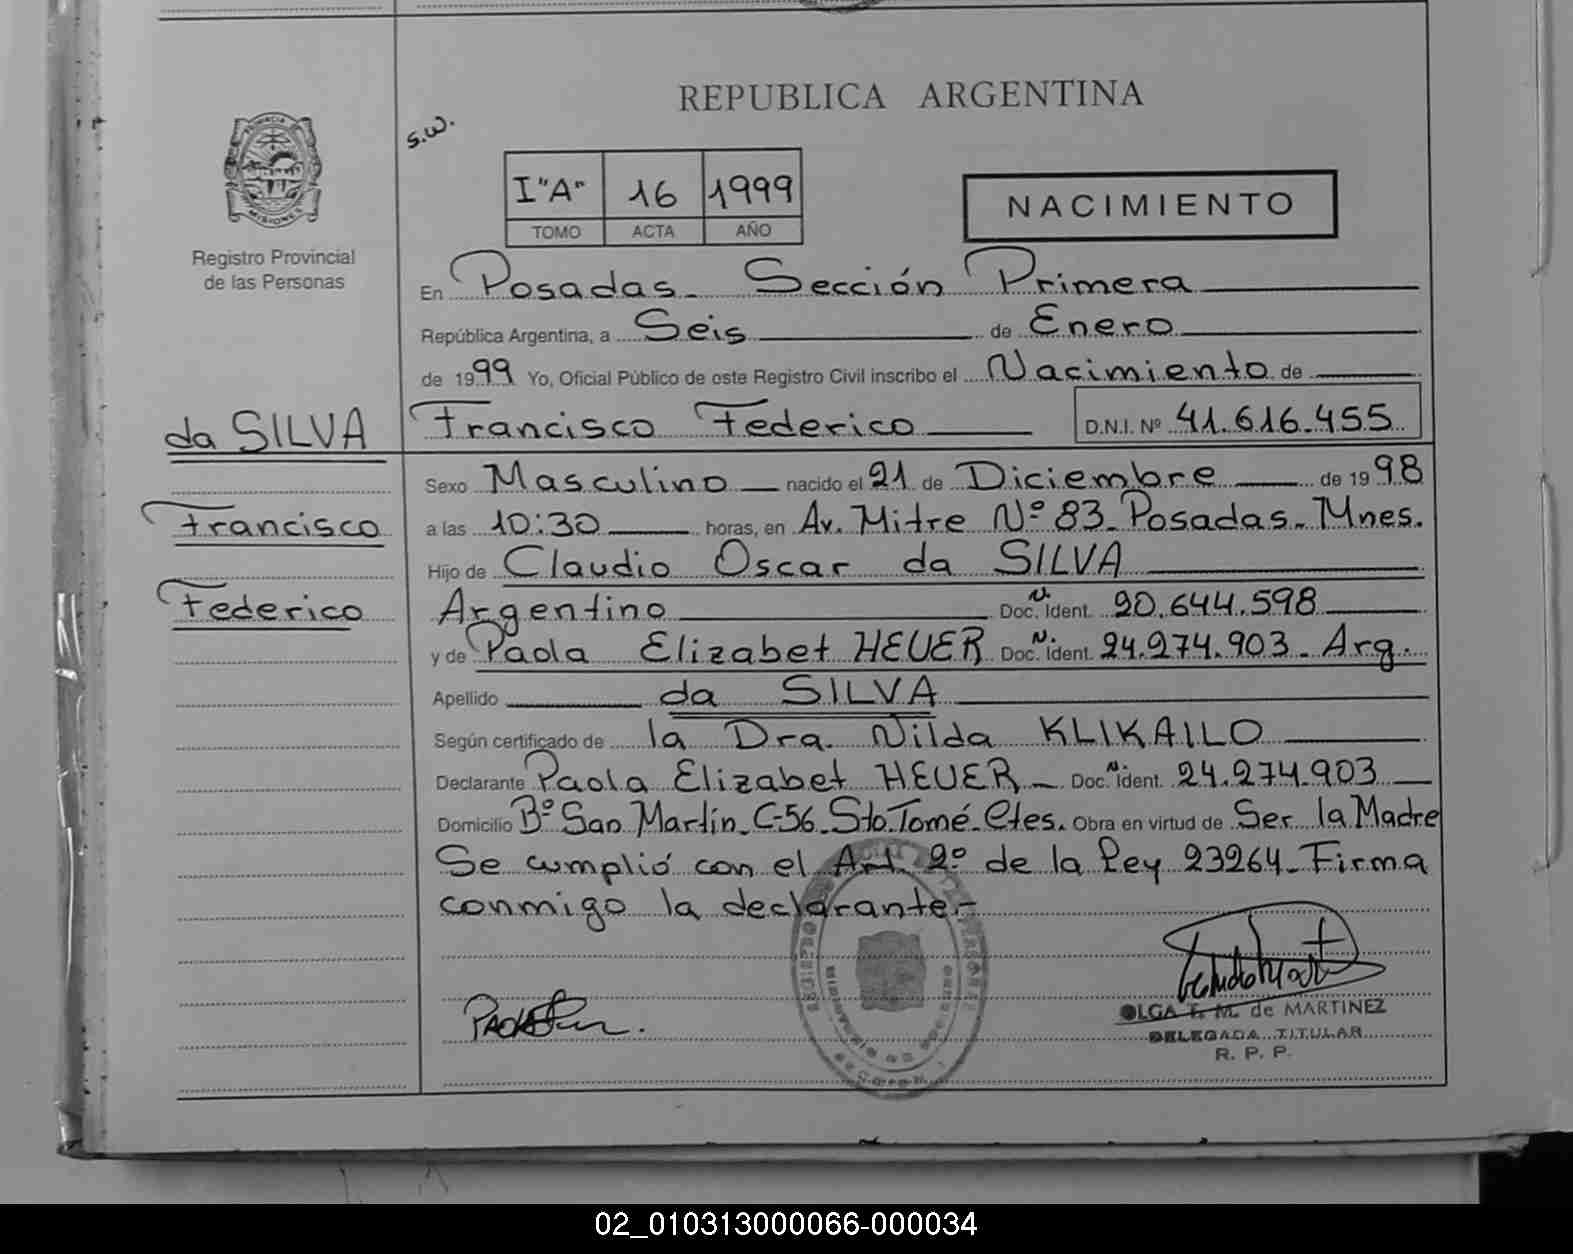 REPUBLICA ARGENTINA
s.w.
I"A" 16 1999
TOMO ACTA AÑO
NACIMIENTO
PROVINCIA
MISIONES
Registro Provincial
de las Personas
En Posadas - Sección Primera
República Argentina, a Seis de Enero
de 1999 Yo, Oficial Público de este Registro Civil inscribo el Nacimiento de
da SILVA
Francisco Federico D.N.I. Nº 41.616.455
Sexo Masculino nacido el 21 de Diciembre de 1998
Francisco
a las 10:30 horas, en Av. Mitre Nº 83 - Posadas - Mnes.
Hijo de Claudio Oscar da SILVA
Federico
Argentino Doc. N. Ident. 20.644.598
y de Paola Elizabet HEUER Doc. N. Ident. 24.274.903 - Arg.
Apellido da SILVA
Según certificado de la Dra. Nilda KLIKAILO
Declarante Paola Elizabet HEUER - Doc. N. Ident. 24.274.903
Domicilio Bº San Martín - C-56 - Sto. Tomé - Ctes. Obra en virtud de Ser la Madre
Se cumplió con el Art. 2º de la Ley 23264 - Firma
conmigo la declarante.-
OLGA T. M. de MARTINEZ
DELEGADA TITULAR
R. P. P.
02_010313000066-000034